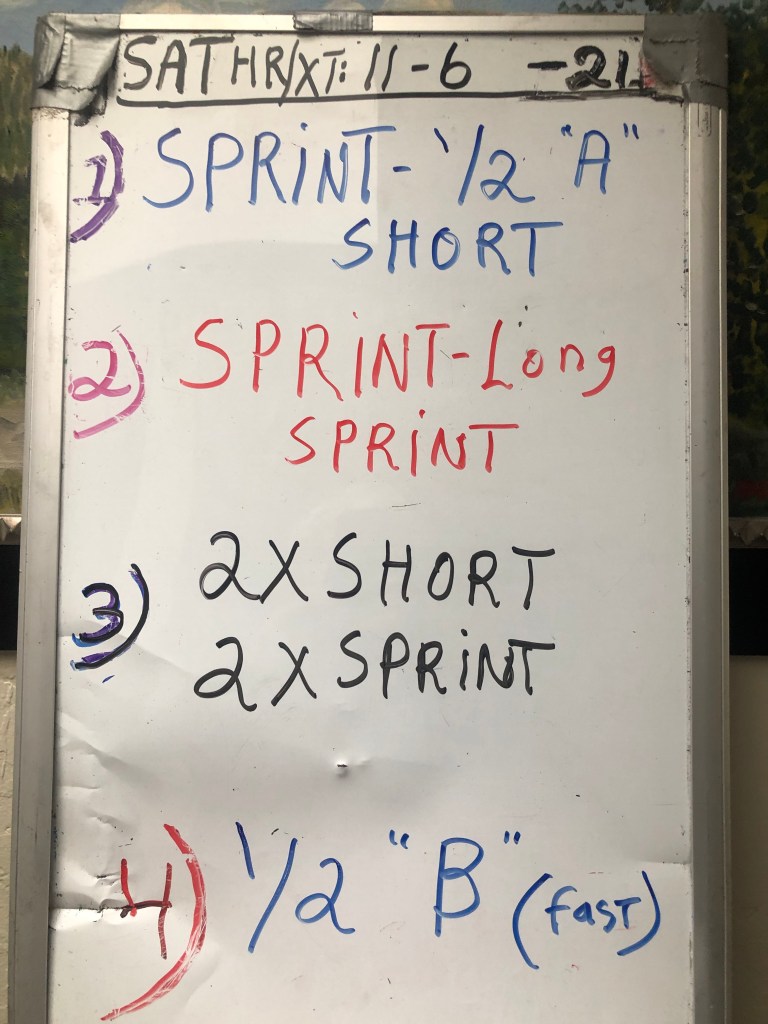 SAT HR/XT: 11-6 -21
1) SPRiNT- 1/2 "A"
SHORT
2) SPRiNT-Long
SPRiNT
3) 2X SHORT
2X SPRiNT
4) 1/2 "B" (fasT)